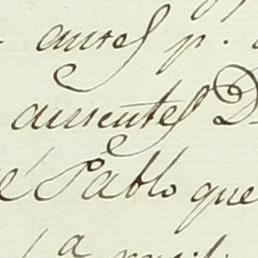 antes p.
ausentes D
é Pablo que
a